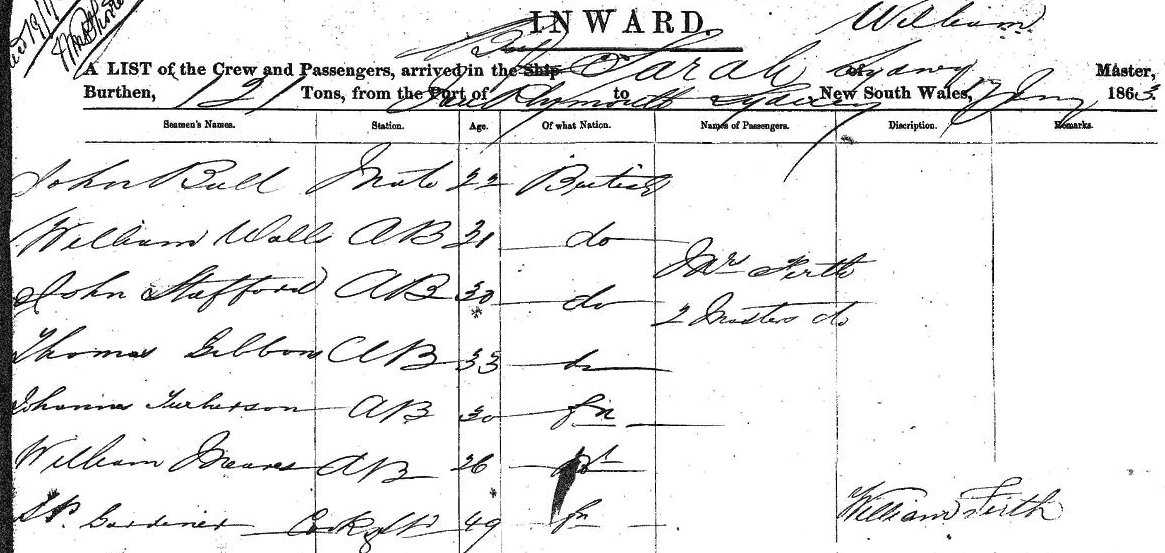 INWARD.
William
A LIST of the Crew and Passengers, arrived in the Ship Sarah of Sydney Master,
Burthen, 121 Tons, from the Port of Plymouth to Sydney New South Wales, 7 Jany 1863
Seamen's Names. Station. Age. Of what Nation. Names of Passengers. Discription. Remarks.
John Bull Mate 22 British
William Walls AB 21 do
Mrs Firth
John Stafford AB 30 do
2 Masters do
Thomas Gibbons AB 33 do
Johannes AB 30 fn
William Meares AB 26 Bt
Gardiner Cook & St 49 fn
William Firth